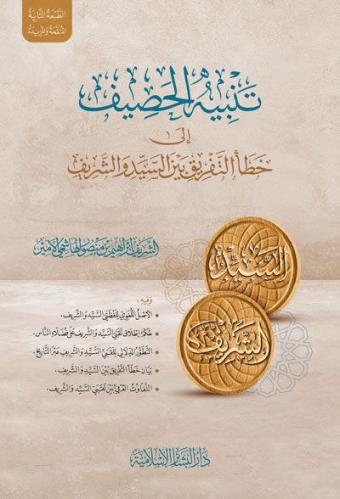 الطبعة الثانية
المنقحة والمزيدة
تنبيه الحصيف
إلى
خطأ التفريق بين السيد والشريف
الشريف إبراهيم بن منصور الهاشمي الأمير
السيد
الشريف
وفيه:
الأصل اللغوي للفظتي السيد والشريف.
حكم إطلاق لقبي السيد والشريف على فضلاء الناس.
التطور الدلالي للقبي السيد والشريف عبر التاريخ.
بيان خطأ التفريق بين السيد والشريف.
التفاوت العرفي بين لقبي السيد والشريف.
دار البشائر الإسلامية